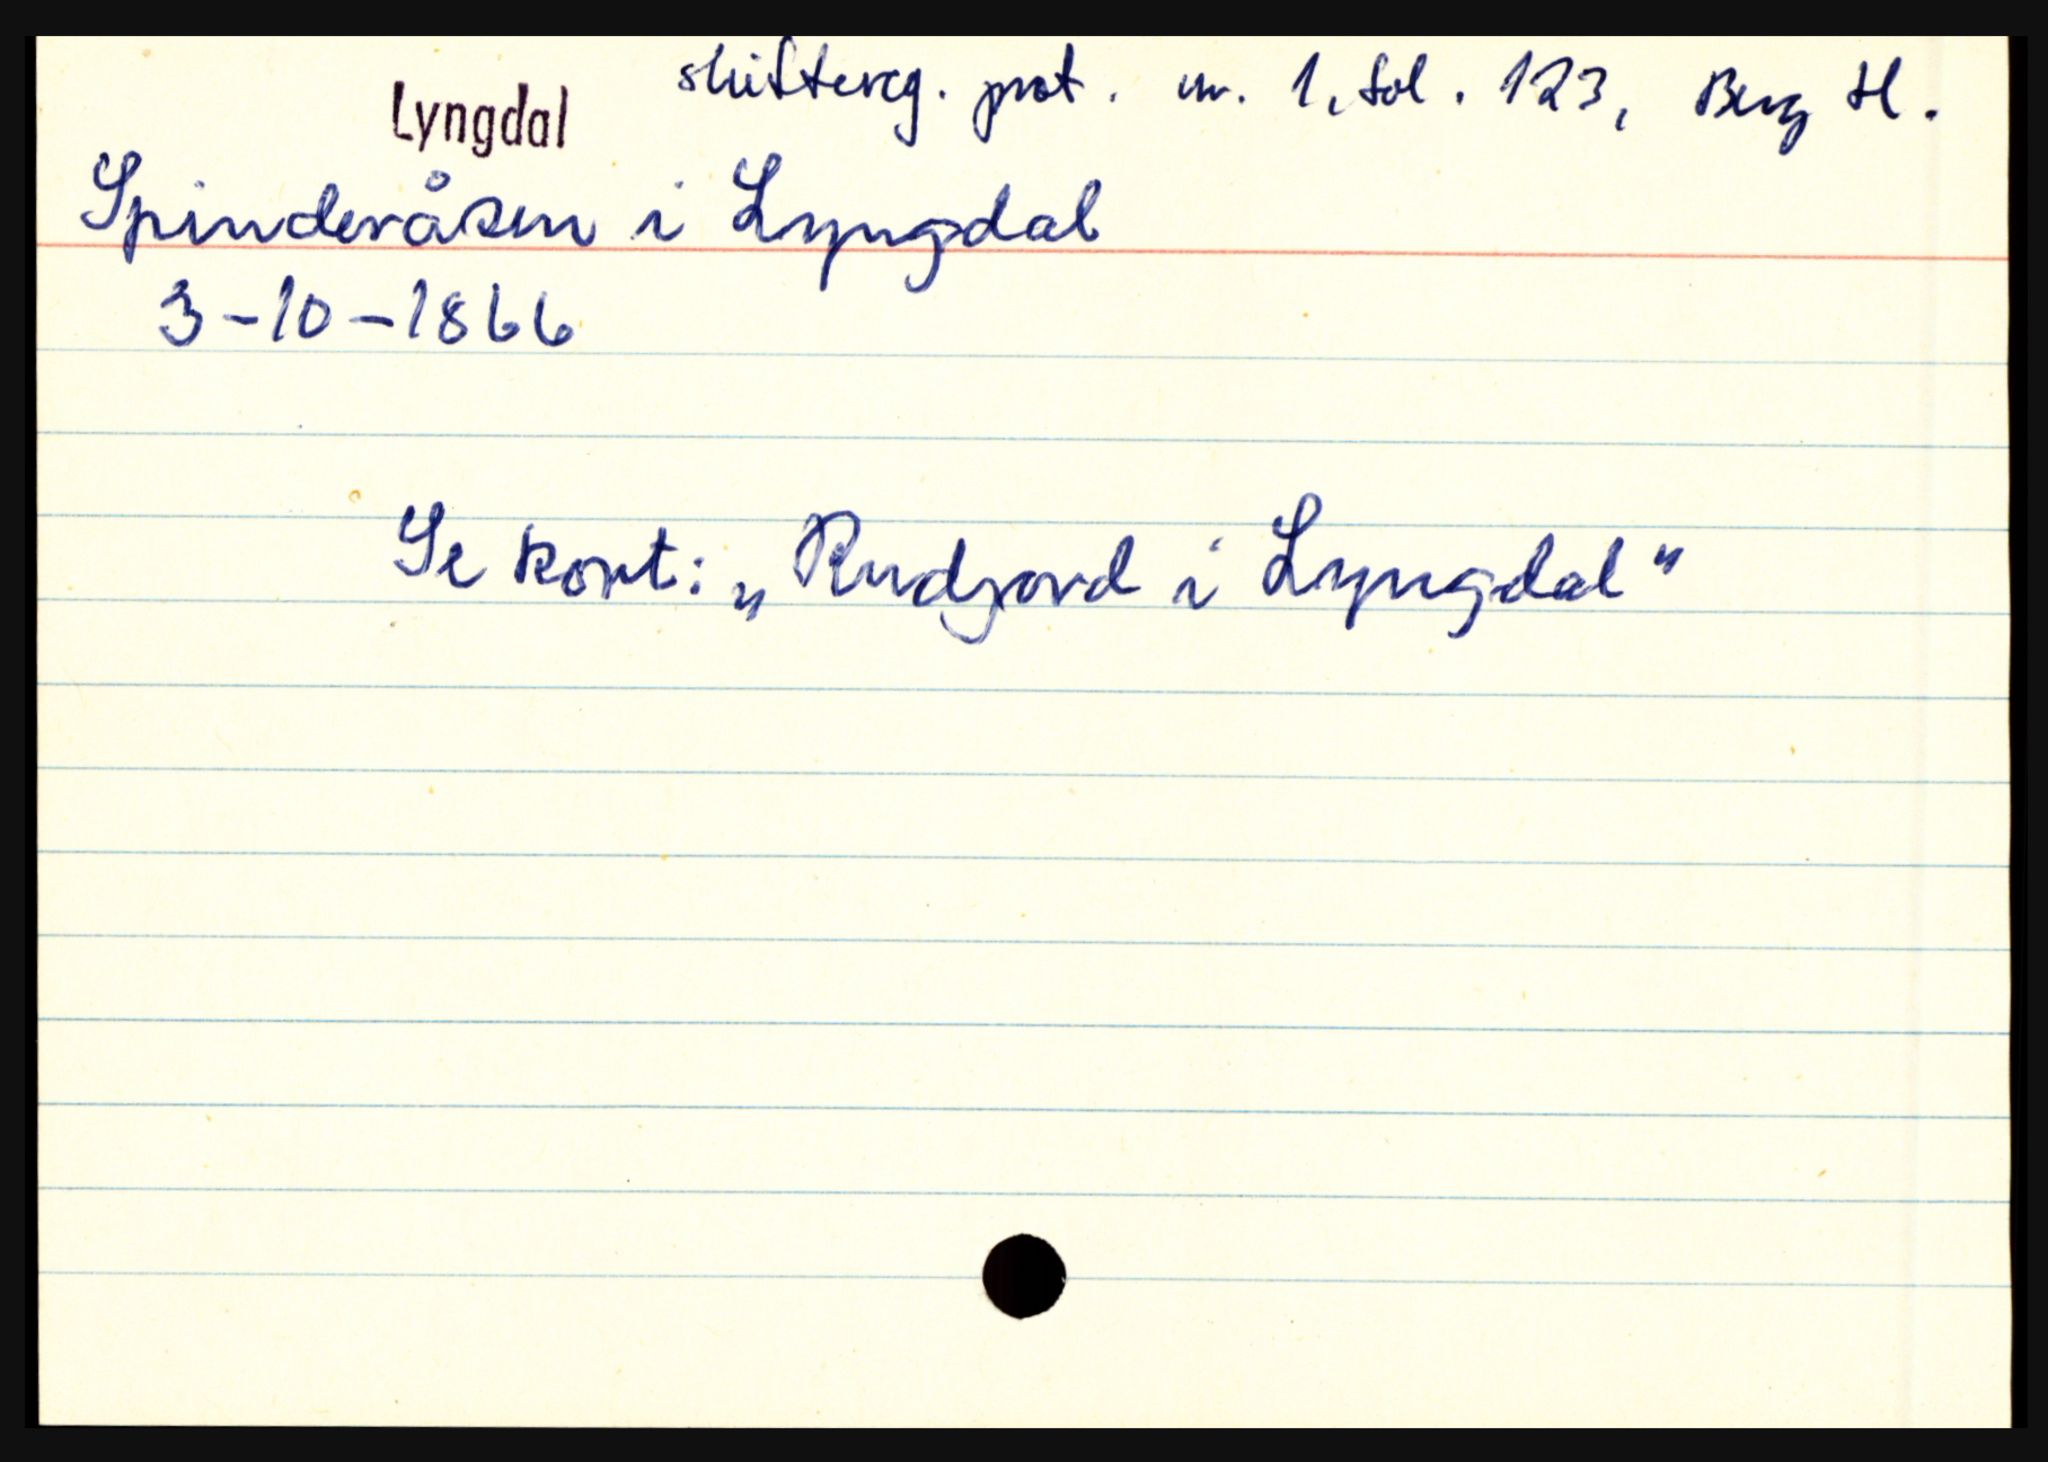 skiftereg. prot. nr. 1, fol. 123, Berg tl.
Lyngdal
Spinderåsen i Lyngdal
3-10-1866
Se kort: „Rudjord i Lyngdal"